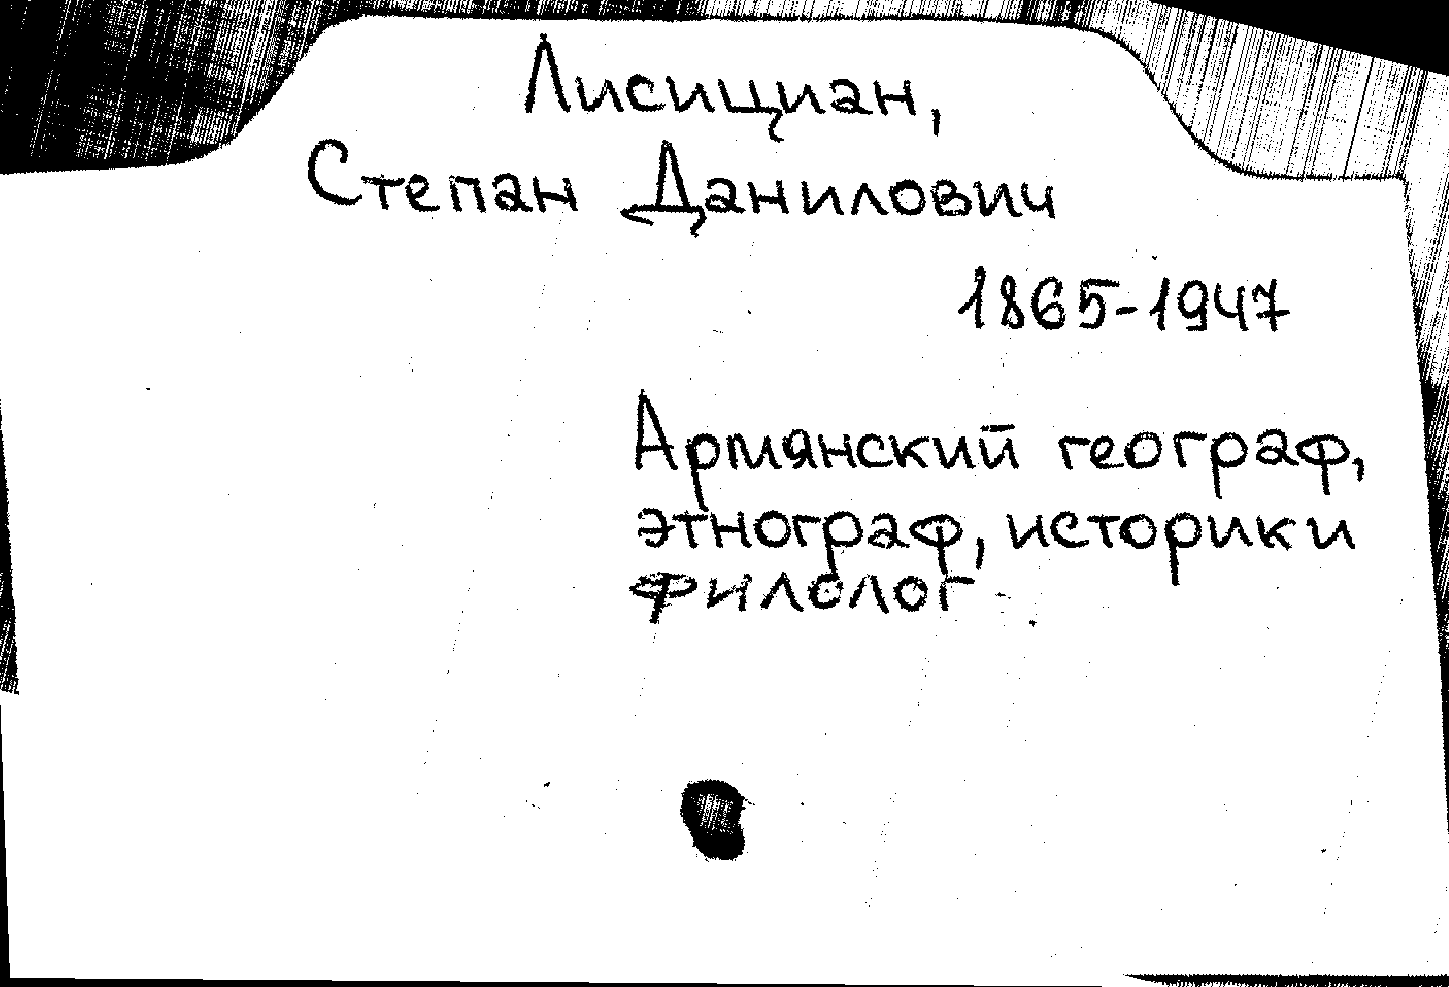 Лисициан,
Степан Данилович
1865-1947
Армянский географ,
этнограф, историк и
филолог